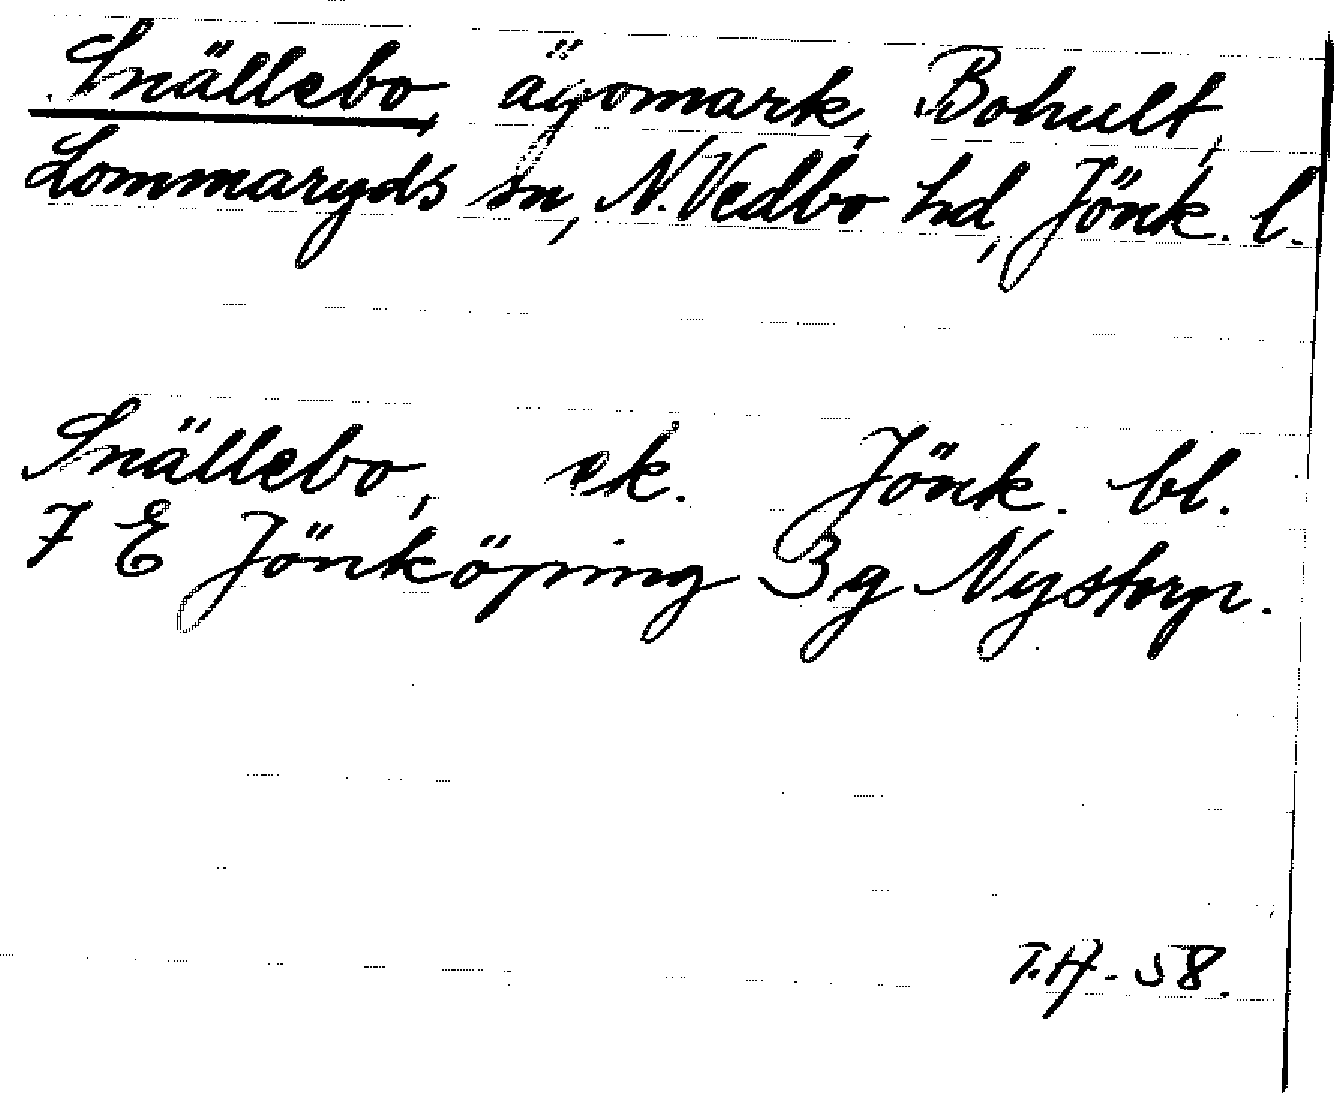 Snällebo, ägomark, Bohult,
Lommaryds sn, N. Vedbo hd, Jönk. l.
Snällebo, ek. Jönk. bl.
7 E Jönköping 3g Nystorp.
T.H-58.